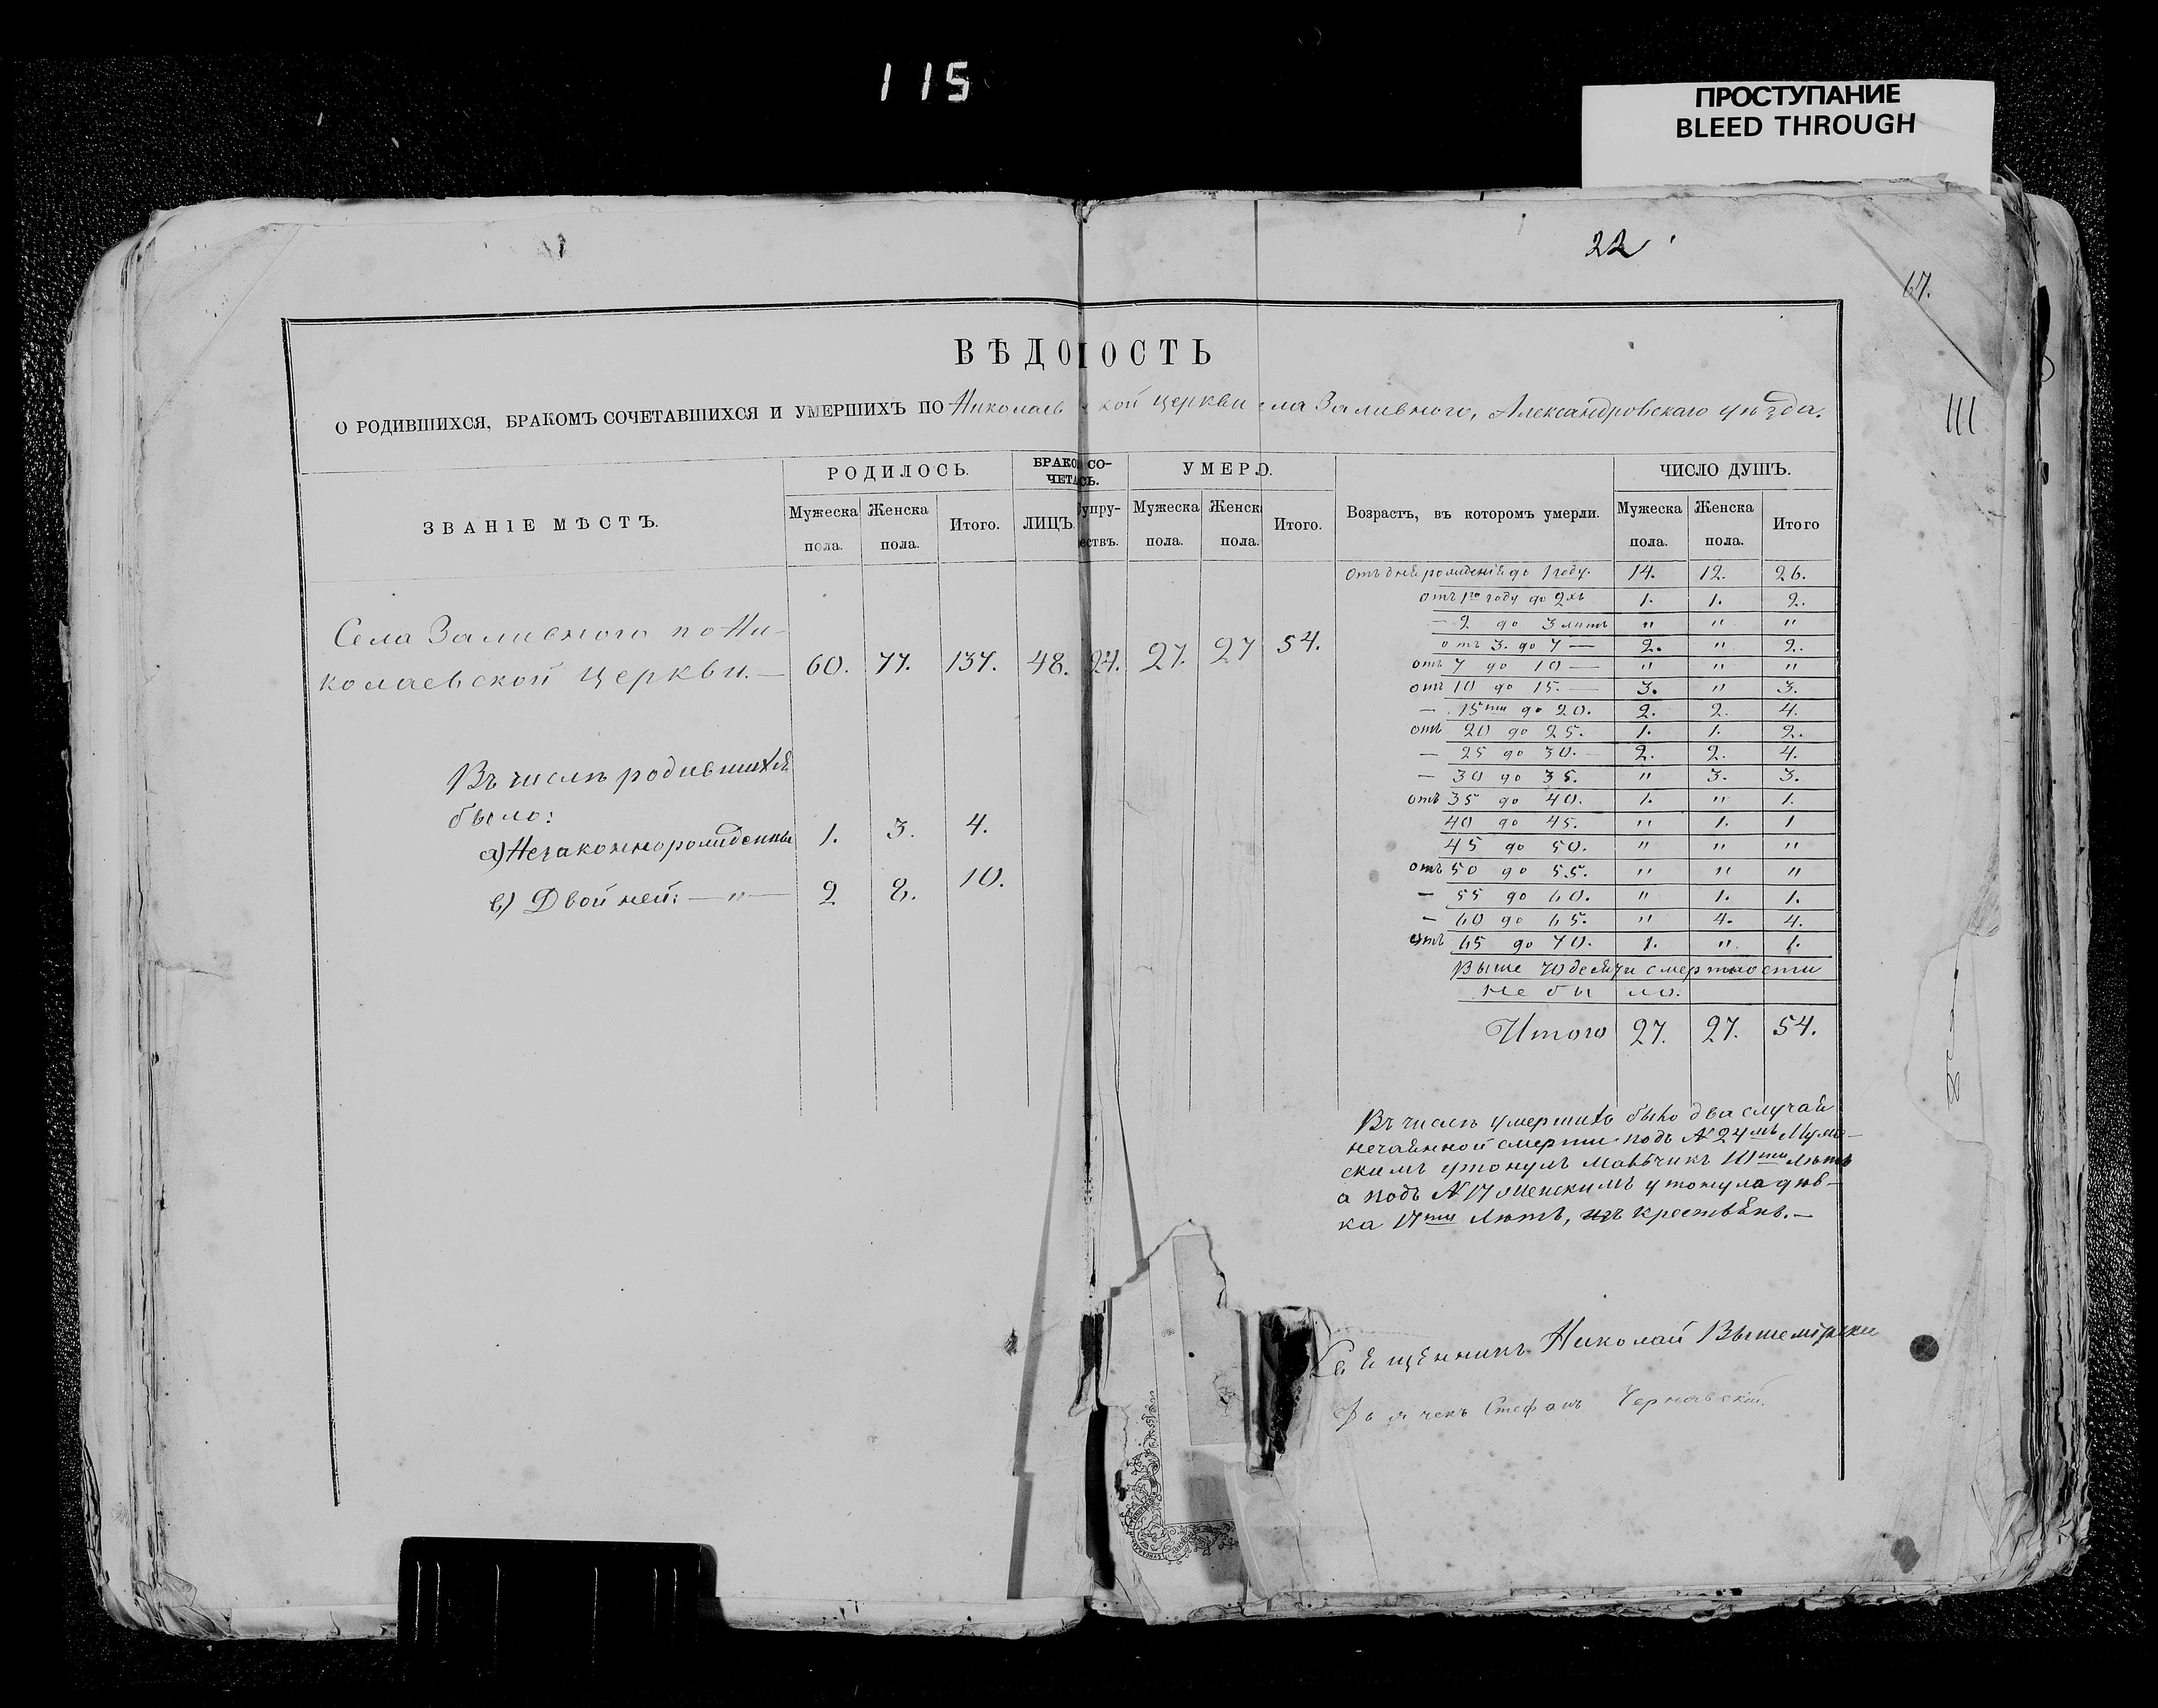 115
ПРОСТУПАНИЕ
BLEED THROUGH
22
67.
111
ВѢДОМОСТЬ
О РОДИВШИХСЯ, БРАКОМЪ СОЧЕТАВШИХСЯ И УМЕРШИХЪ ПО Николаевской церкви села Заливного, Александровскаго уѣзда.
ЗВАНІЕ МѢСТЪ. РОДИЛОСЬ. БРАКОМ СО-ЧЕТАСЬ. УМЕРЛО. Возрастъ, въ которомъ умерли. ЧИСЛО ДУШЪ.
Мужеска пола. Женска пола. Итого. ЛИЦЪ. Супру-ествъ. Мужеска пола. Женска пола. Итого. Мужеска пола. Женска пола. Итого
Села Заливного по Ни-
колаевской церкви.— 60. 77. 137. 48. 24. 27. 27 54.
Въ числѣ родившихся
было:
а) Незаконнорожденны 1. 3. 4.
в) Двойней: —"— 2 8. 10.
Отъ дня рожденія до 1 году. 14. 12. 26.
отъ 1го году до 2хъ 1. 1. 2.
— 2 до 3 лѣтъ " " "
отъ 3. до 7 — 2. " 2.
отъ 7 до 10 — " " "
отъ 10 до 15. — 3. " 3.
— 15ти до 20. 2. 2. 4.
отъ 20 до 25. 1. 1. 2.
— 25 до 30. — 2. 2. 4.
— 30 до 35. " 3. 3.
отъ 35 до 40. 1. " 1.
40 до 45. " 1. 1
45 до 50. " " "
отъ 50 до 55. " " "
— 55 до 60. " 1. 1.
— 60 до 65. " 4. 4.
отъ 65 до 70. 1. " 1.
Выше 70 десяти смертности
не было.
Итого 27. 27. 54.
Въ числѣ умершихъ было два случая
нечаянной смерти подъ № 24мъ Муже-
скимъ утонулъ мальчикъ лѣтъ
а подъ № 17 женскимъ утонула дѣв-
ка 17ти лѣтъ, изъ крестьянъ.—
Священникъ Николай
Дьячекъ Стефанъ Чернявскій.